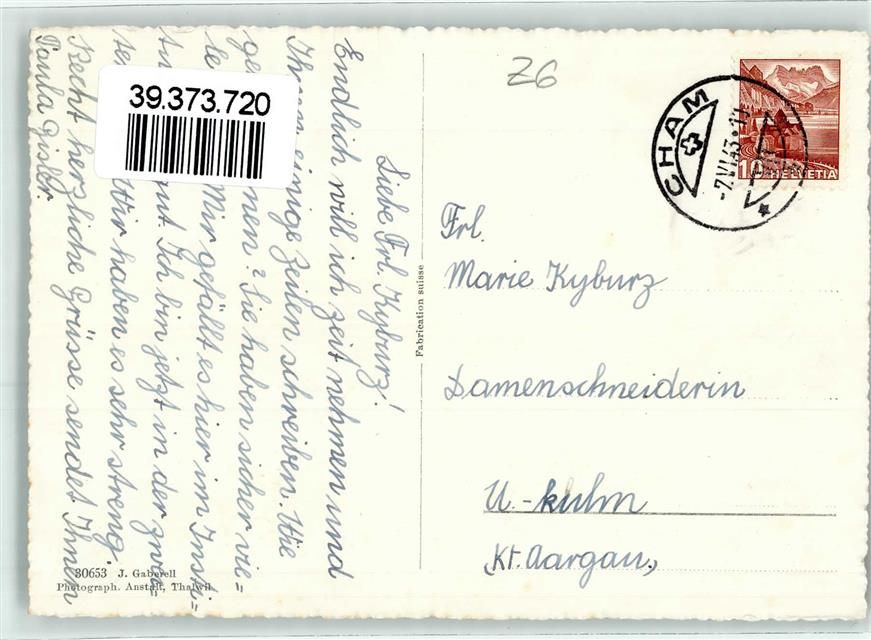 Liebe Frl. Kyburz!
Endlich will ich zeit nehmen und
Ihnen einige Zeilen schreiben. Wie
ge men? Sie haben sicher vie=
le Mir gefällt es hier im Insti=
tu gut. Ich bin jetzt in der zwei=
ten Wir haben es sehr streng.
Recht herzliche Grüsse sendet Ihnen
Paula Gisler.
39.373.720
30653 J. Gaberell
Photograph. Anstalt, Thalwil
Fabrication suisse
Z6
CHAM
-7.VI.43.11
10 HELVETIA
Frl.
Marie Kyburz
Damenschneiderin
U.-kulm
Kt. Aargau.